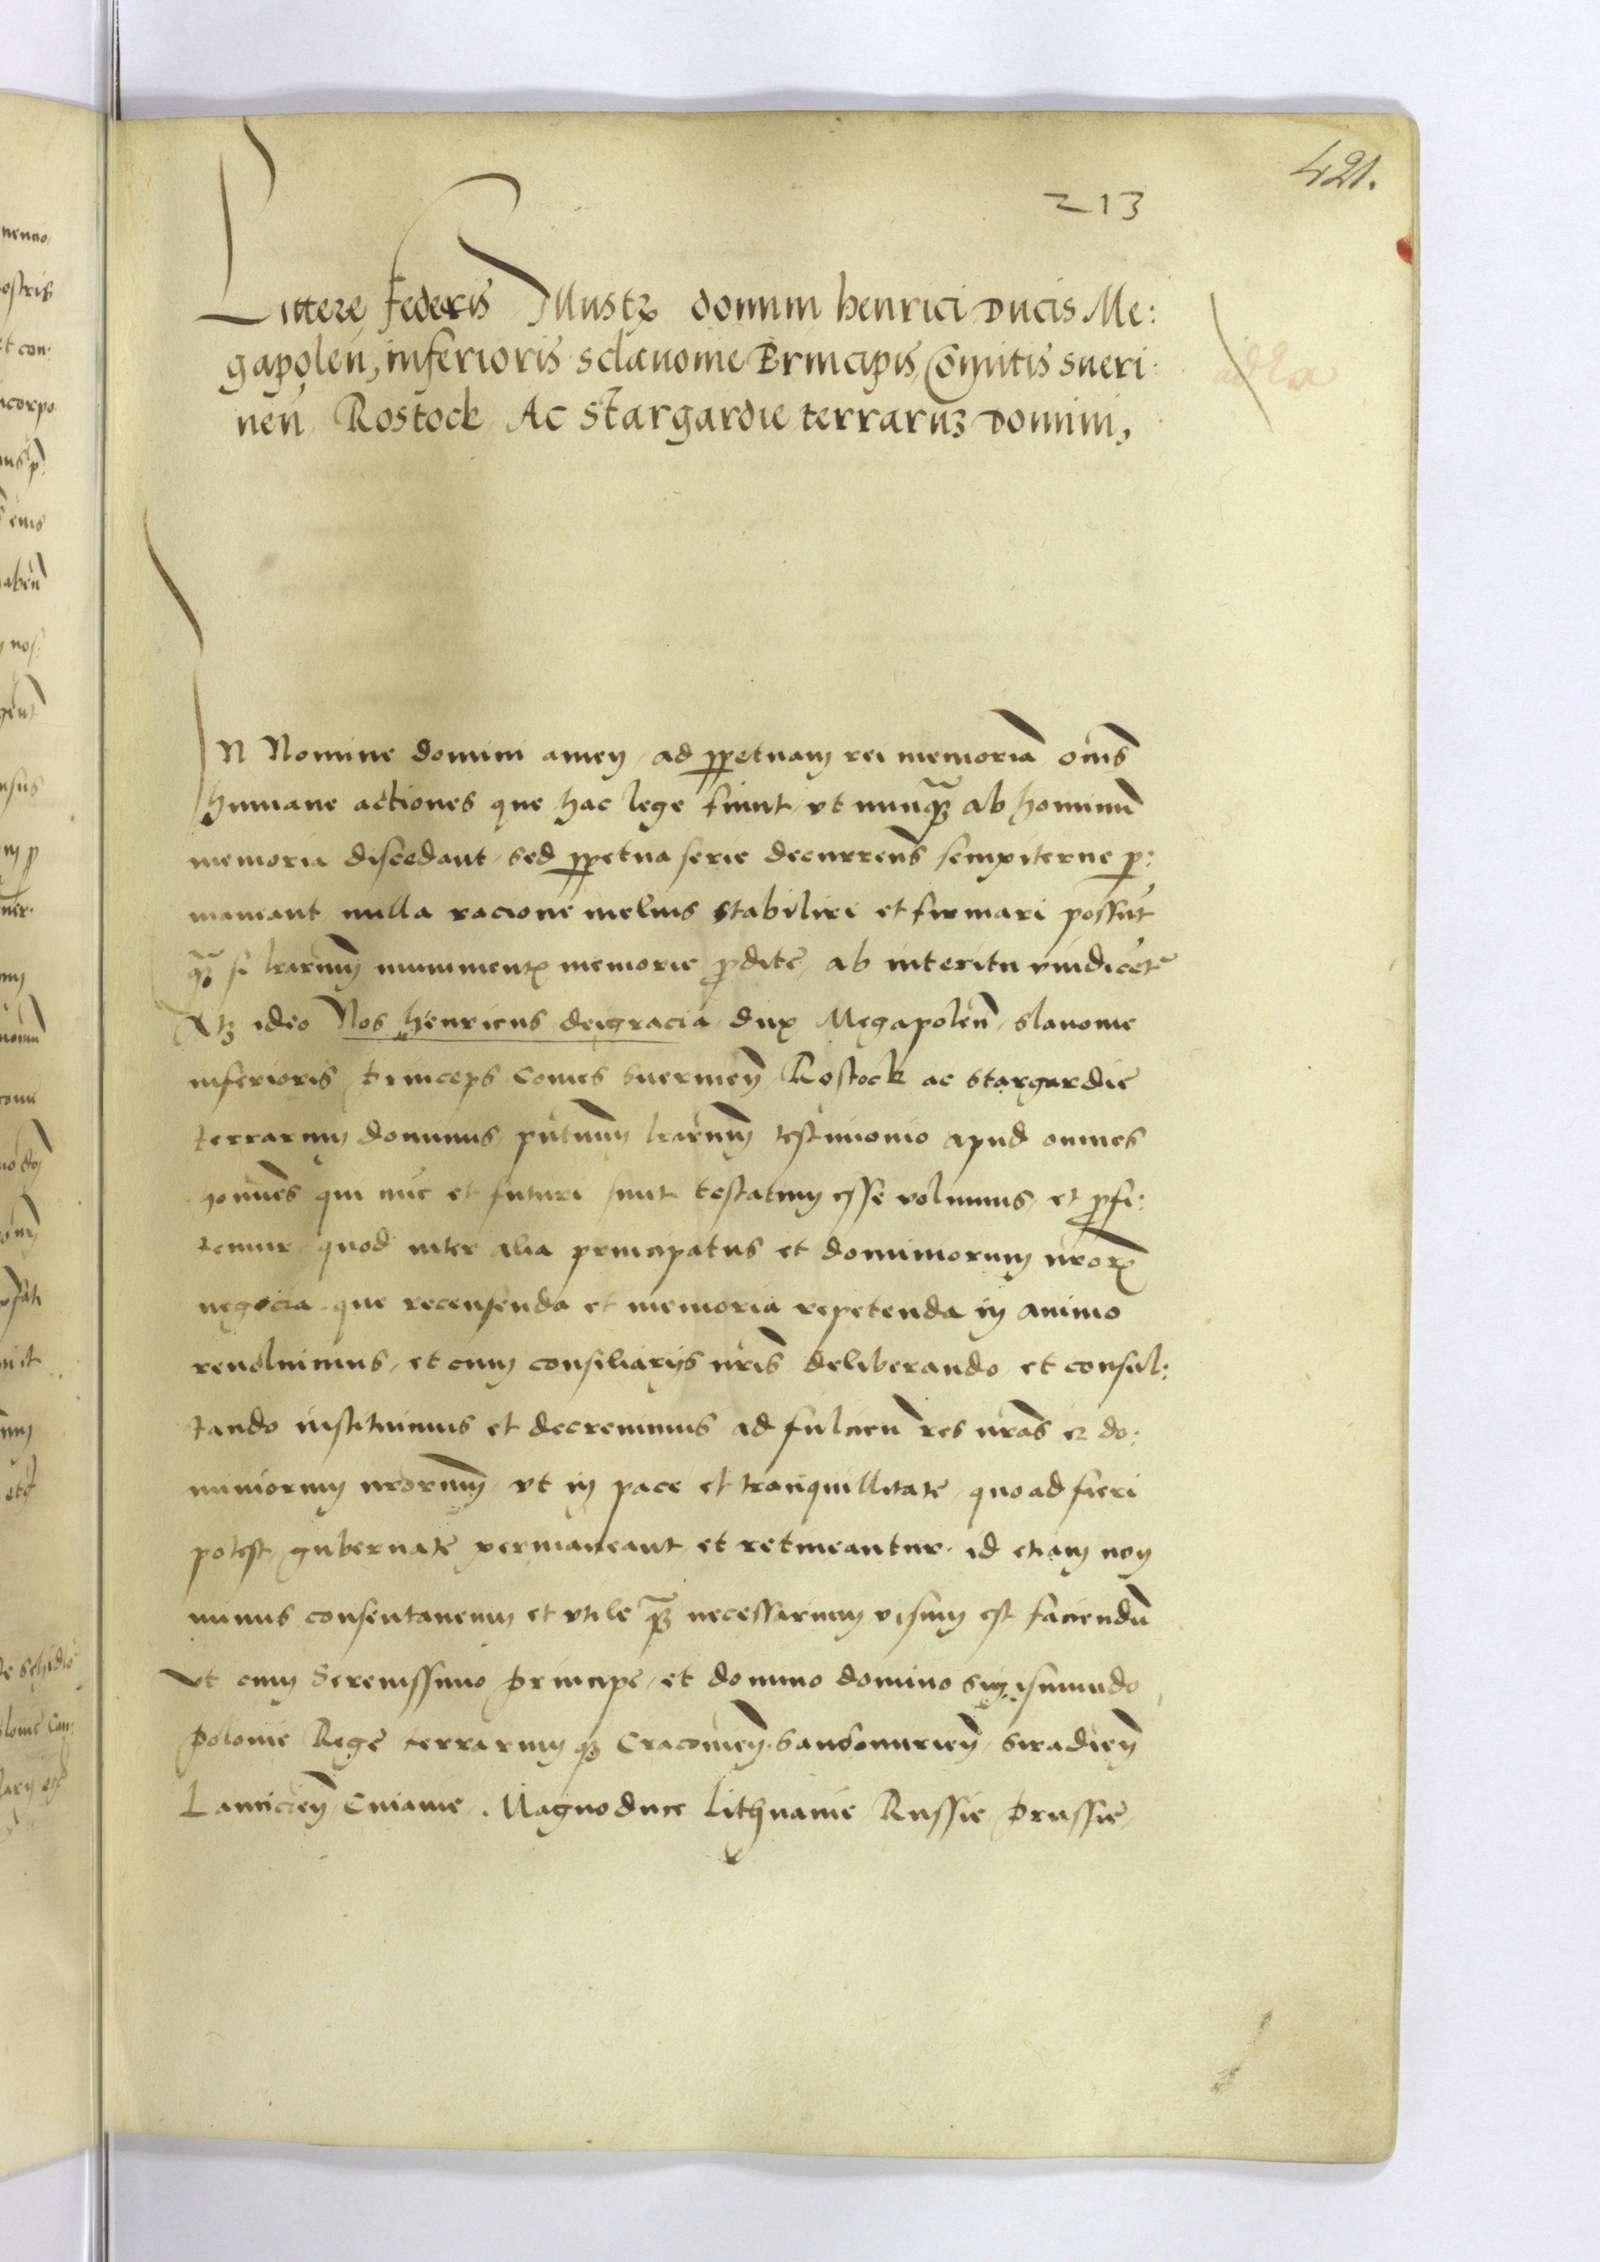 421.
213
Littere federis Illustr domini henrici Ducis Me:
gapoleñ, inferioris sclavonie Principis, Comitis sueri:
neñ Rostock Ac Stargardie terraruʒ Domini,
IN Nomine domini amen, ad ppetuam rei memoriā om̄s
humane actiones que hac lege fiunt, vt nunq̄ʒ ab hominū
memoria discedant, sed ppetua serie decurrens̄ sempiterne p:
maneant nulla racione melius stabiliri et firmari possūt
q̄ʒ si l̄rarum munimentꝭ memorie prodite, ab interitu vindicēt᷑
Atʒ ideo Nos henricus dei gracia dux Megapoleñ, slavonie
inferioris, princeps Comes Suerineñ, Rostock ac Stargardie
terrarum dominus, pn̄tium l̄rarum testimonio apud omnes
homi̅es qui nūc et futuri sunt testatum esse volumus, et profi:
temur, quod inter alia principatus et dominiorum n̄roꝝ
negocia que recensenda et memoria repetenda in animo
revolvimus, et cum consiliarijs n̄ris deliberando et consul:
tando instituimus et decrevimus ad fulcien̄ res n̄ras et do:
miniorum n̄rorum, vt in pace et tranquillitate, quoad fieri
potest, gubernate permaneant et retineantur, id etiam non
minus consentaneum et vtile q̄ʒ necessarium visum est faciendū
vt cum Serenissimo principe, et domino domino Sigismundo
Polonie Rege terrarumqʒ Cracovien̄, Sandomirien̄, Siradien̄
Lancicien̄, Cuiavie, Magno duce Lithuanie Russie Prussie,